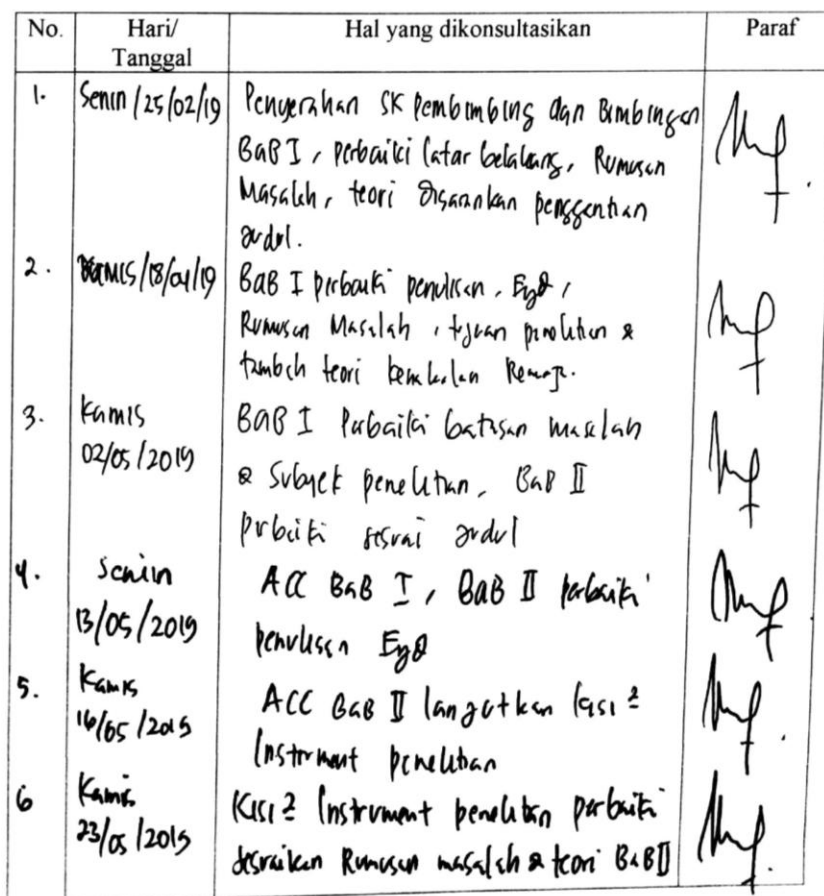 No. Hari/ Hal yang dikonsultasikan Paraf
Tanggal
1. Senin/25/02/19 Penyerahan SK Pembimbing dan Bimbingan
BaB I, perbaiki latar belakang, Rumusan
Masalah, teori disarankan penggantian
judul.
2. Kamis/18/04/19 BaB I perbaiki penulisan, EyD,
Rumusan Masalah, tujuan penelitian &
tambah teori kenakalan Remaja.
3. Kamis BAB I Perbaiki batasan masalah
02/05/2019 & Subyek penelitian, BaB II
perbaiki sesuai judul
4. Senin ACC BaB I, BaB II perbaiki
13/05/2019 penulisan EyD
5. Kamis ACC BaB II lanjutkan kisi2
16/05/2019 Instrument penelitian
6 Kamis Kisi2 Instrument penelitian perbaiki
23/05/2019 sesuaikan Rumusan masalah & teori BaB II